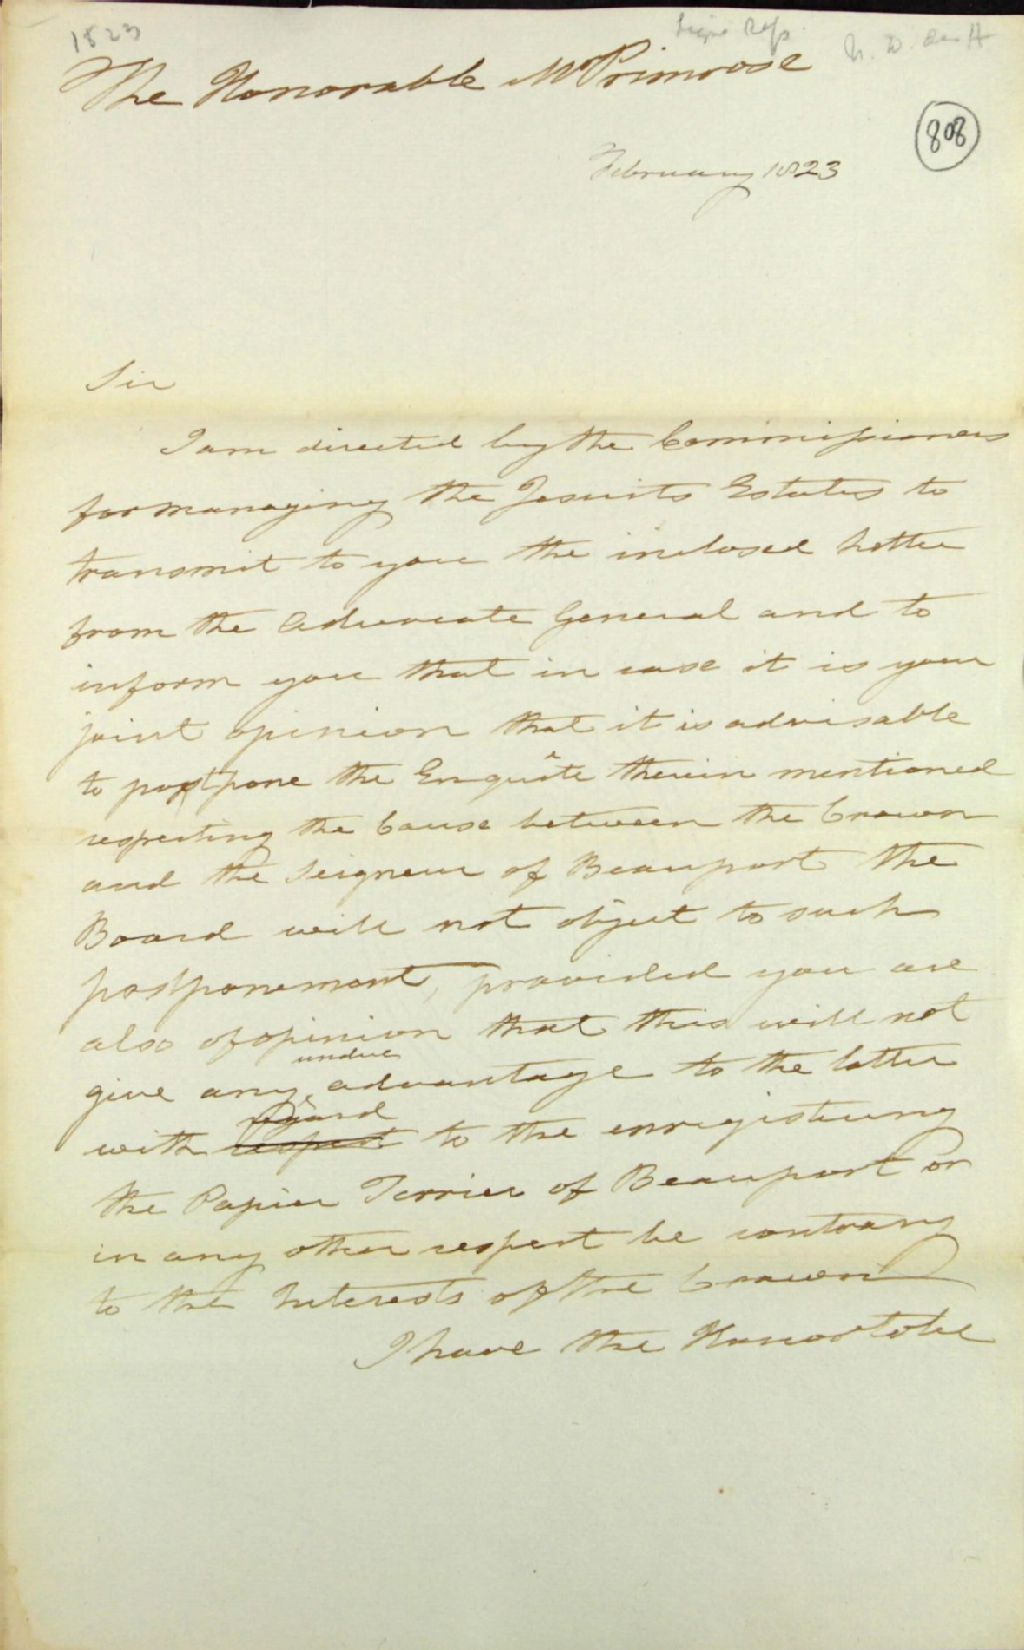 1823
The Honorable Mr Primrose
808
February 1823
Sir
I am directed by the Commissioners
for managing the Jesuits Estates to
transmit to you the inclosed Letter
from the Advocate General and to
inform you that in case it is your
joint opinion that it is advisable
to postpone the Enquête therein mentioned
respecting the Cause between the Crown
and the Seigneur of Beauport the
Board will not object to such
postponement, provided you are
also of opinion that this will not
give any undue advantage to the latter
with respect regard to the enregistering
the Papier Terrier of Beauport or
in any other respect be contrary
to the Interests of the Crown
I have the Honor to be